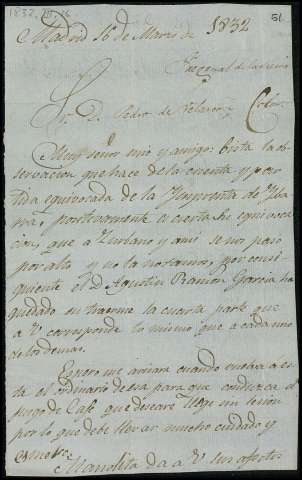 1832, III, 16
51
Madrid 16 de Marzo de 1832
Sr. D. Pedro de Velasco y
Muy señor mio y amigo: bista la ob
servacion que hace de la cuenta y par
tida equivocada de la Imprenta de Yba
rra, positivamente es cierta su equivoca
cion, que a Zurbano y a mi se nos paso
por alto y no la notamos, por consi
guiente el D. Agustin Ramon Garcia ha
quedado en traerme la cuarta parte que
a V. corresponde lo mismo que a cada uno
de los demas.
Espero me avisara cuando vuelva a es
ta el ordinario de esa para que conduzca el
juego de Cafe, que deseare llege sin lesion
por lo que debe llevar mucho cuidado y
esmero.
Manolita da a V. sus afectos